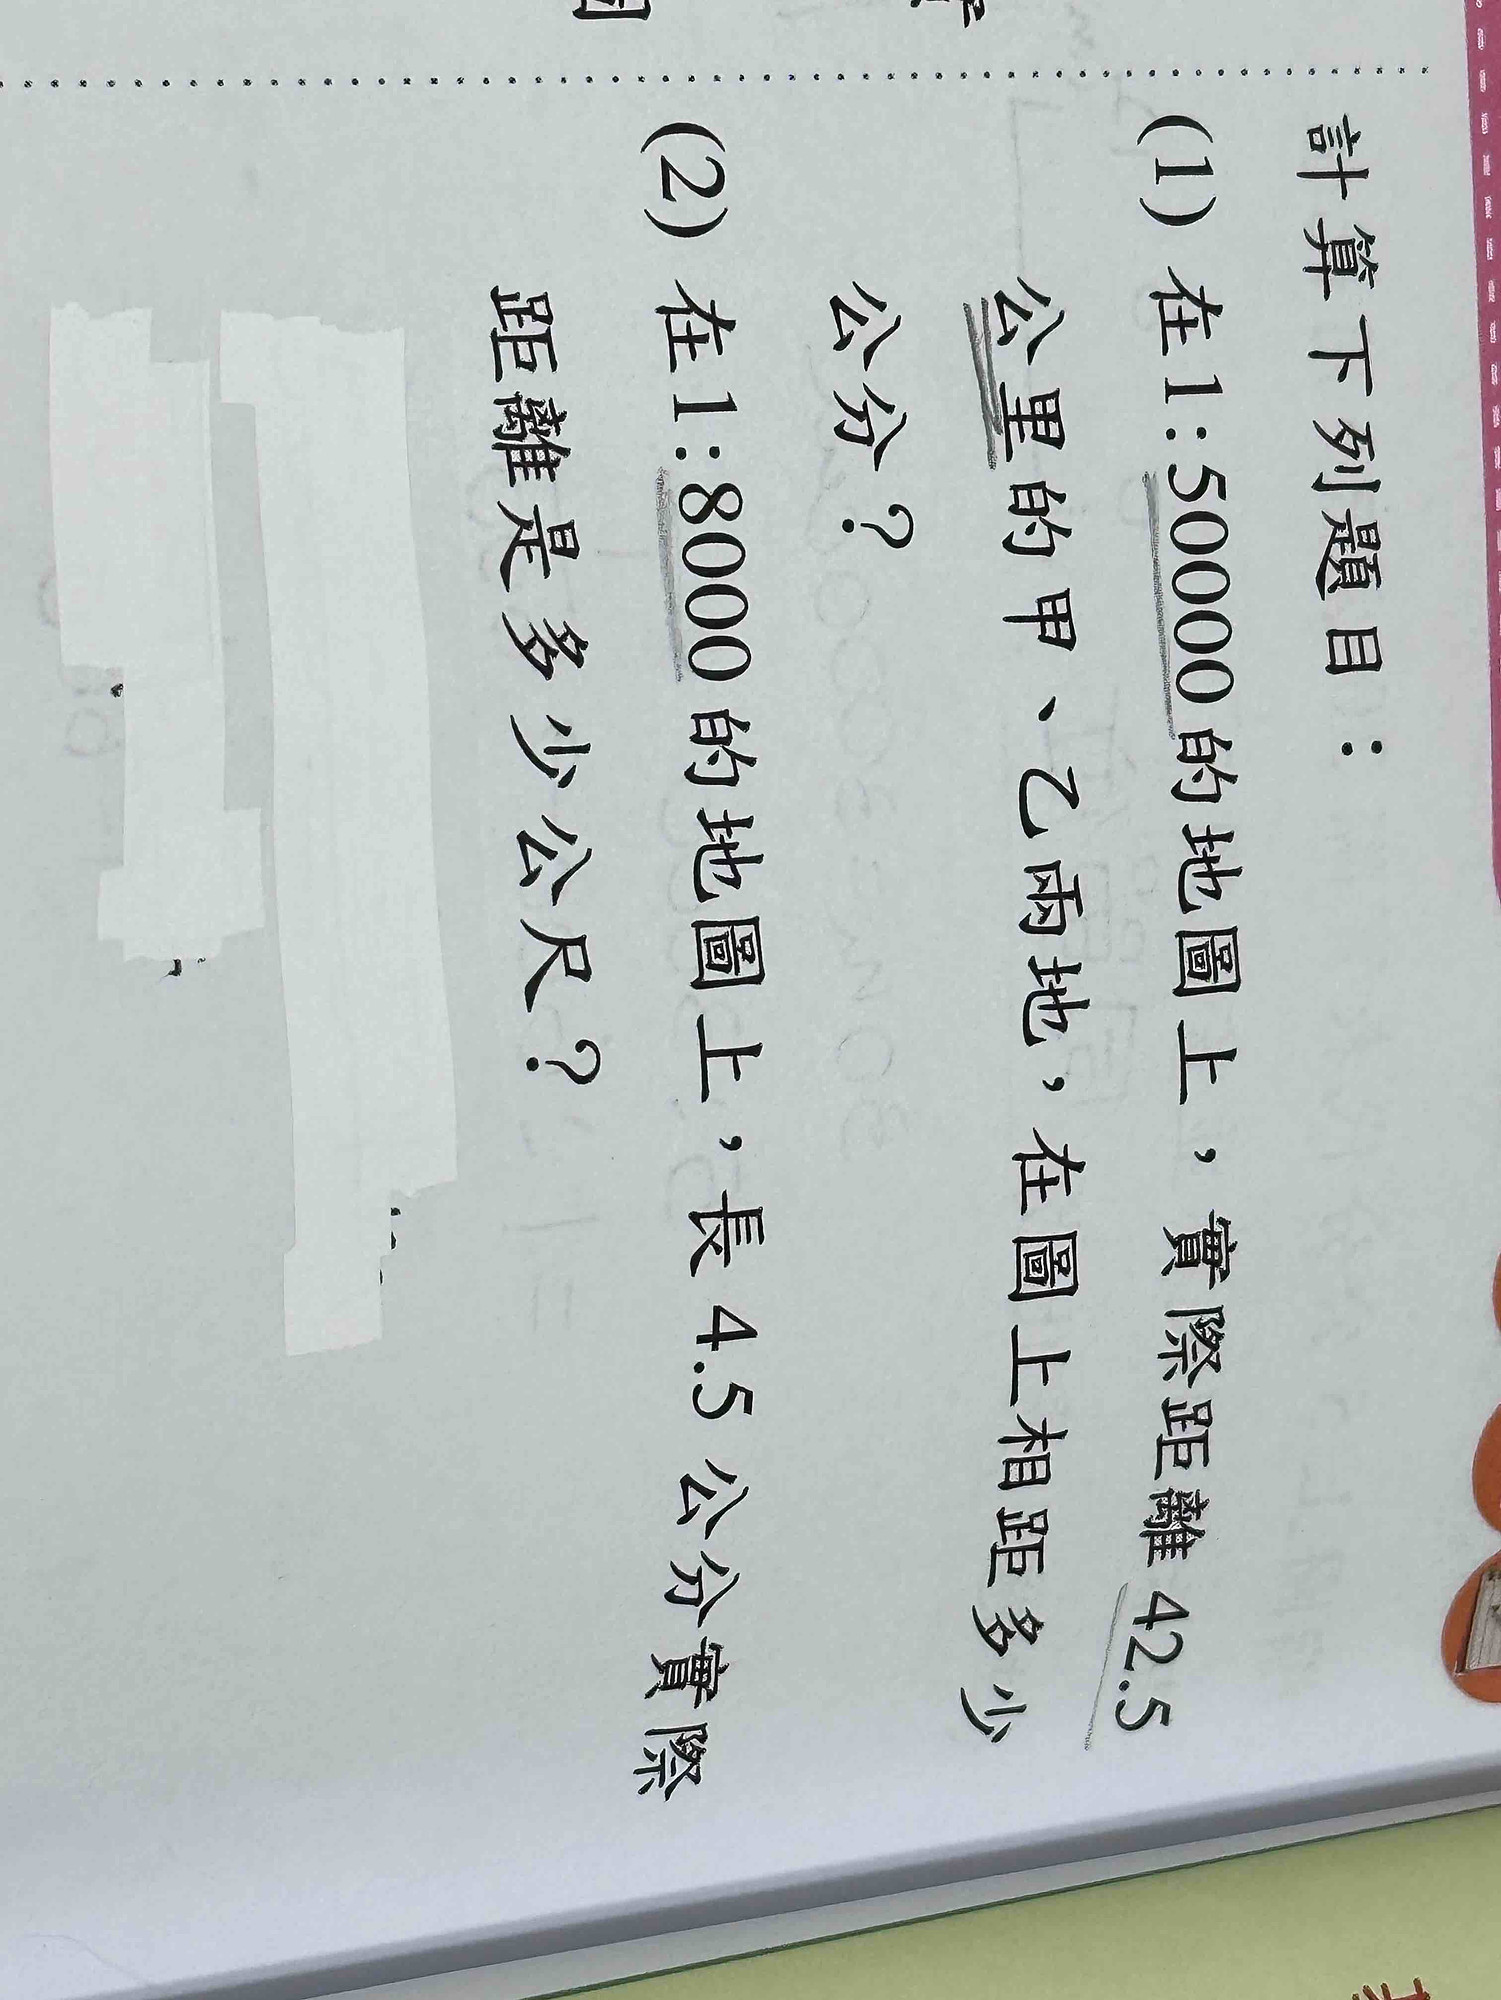 計算下列題目：
(1) 在1:50000的地圖上，實際距離42.5
公里的甲、乙兩地，在圖上相距多少
公分？
(2) 在1:8000的地圖上，長4.5公分實際
距離是多少公尺？